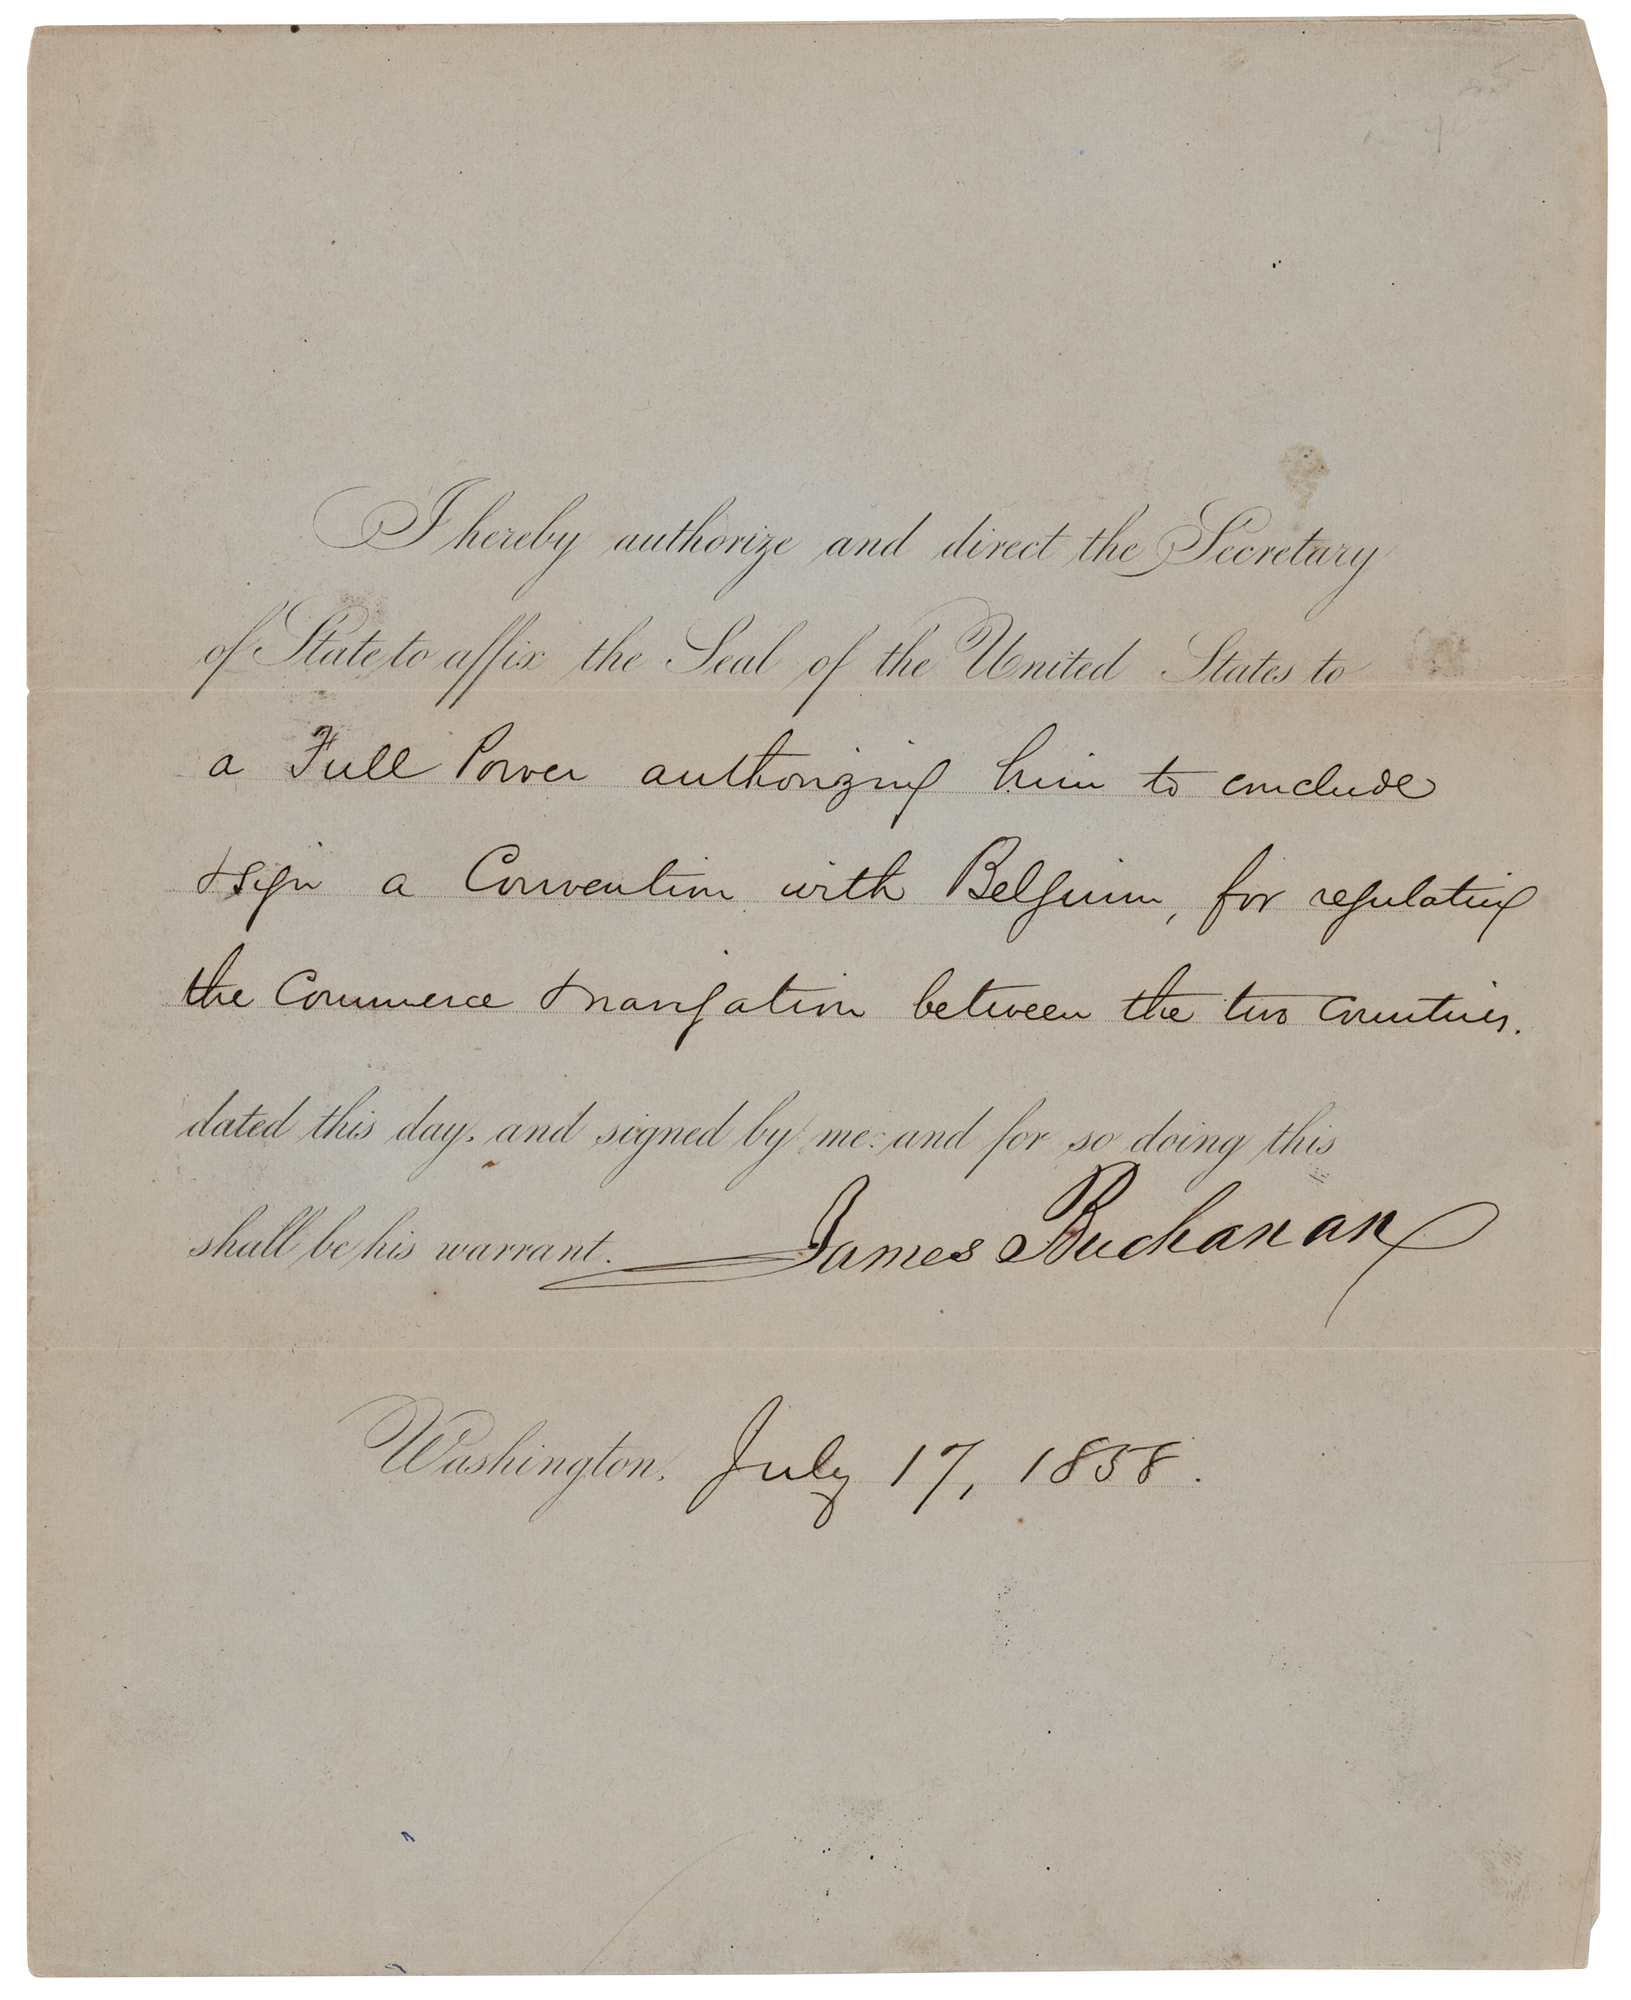 I hereby authorize and direct the Secretary
of State to affix the Seal of the United States to
a Full Power authorizing him to conclude
& sign a Convention with Belgium, for regulating
the Commerce & navigation between the two countries.
dated this day, and signed by me: and for so doing this
shall be his warrant. James Buchanan
Washington, July 17, 1858.